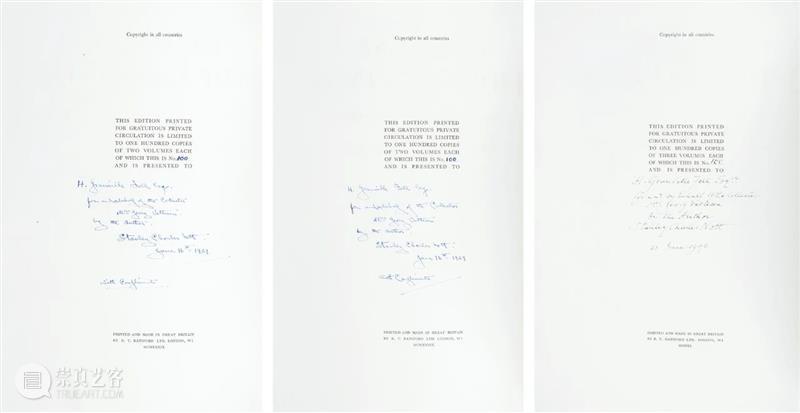 Copyright in all countries
THIS EDITION PRINTED
FOR GRATUITOUS PRIVATE
CIRCULATION IS LIMITED
TO ONE HUNDRED COPIES
OF TWO VOLUMES EACH
OF WHICH THIS IS No. 100
AND IS PRESENTED TO
H. Granville Fell Esq.
for
by the author
Stanley Charles Nott
June 16th 1939
with Compliments
PRINTED AND MADE IN GREAT BRITAIN
LTD. LONDON, W1
Copyright in all countries
THIS EDITION PRINTED
FOR GRATUITOUS PRIVATE
CIRCULATION IS LIMITED
TO ONE HUNDRED COPIES
OF TWO VOLUMES EACH
OF WHICH THIS IS No. 100
AND IS PRESENTED TO
H. Granville Fell Esq.
for
by the author
Stanley Charles Nott
June 16th 1939
with Compliments
PRINTED AND MADE IN GREAT BRITAIN
LTD LONDON, W1
Copyright in all countries
THIS EDITION PRINTED
FOR GRATUITOUS PRIVATE
CIRCULATION IS LIMITED
TO ONE HUNDRED COPIES
OF THREE VOLUMES EACH
OF WHICH THIS IS No.
AND IS PRESENTED TO
H. Granville Fell Esq.
for
by the Author
Stanley Charles Nott
June
PRINTED AND MADE IN GREAT BRITAIN
LTD. LONDON, W1
崇真艺客
TRUEART.COM